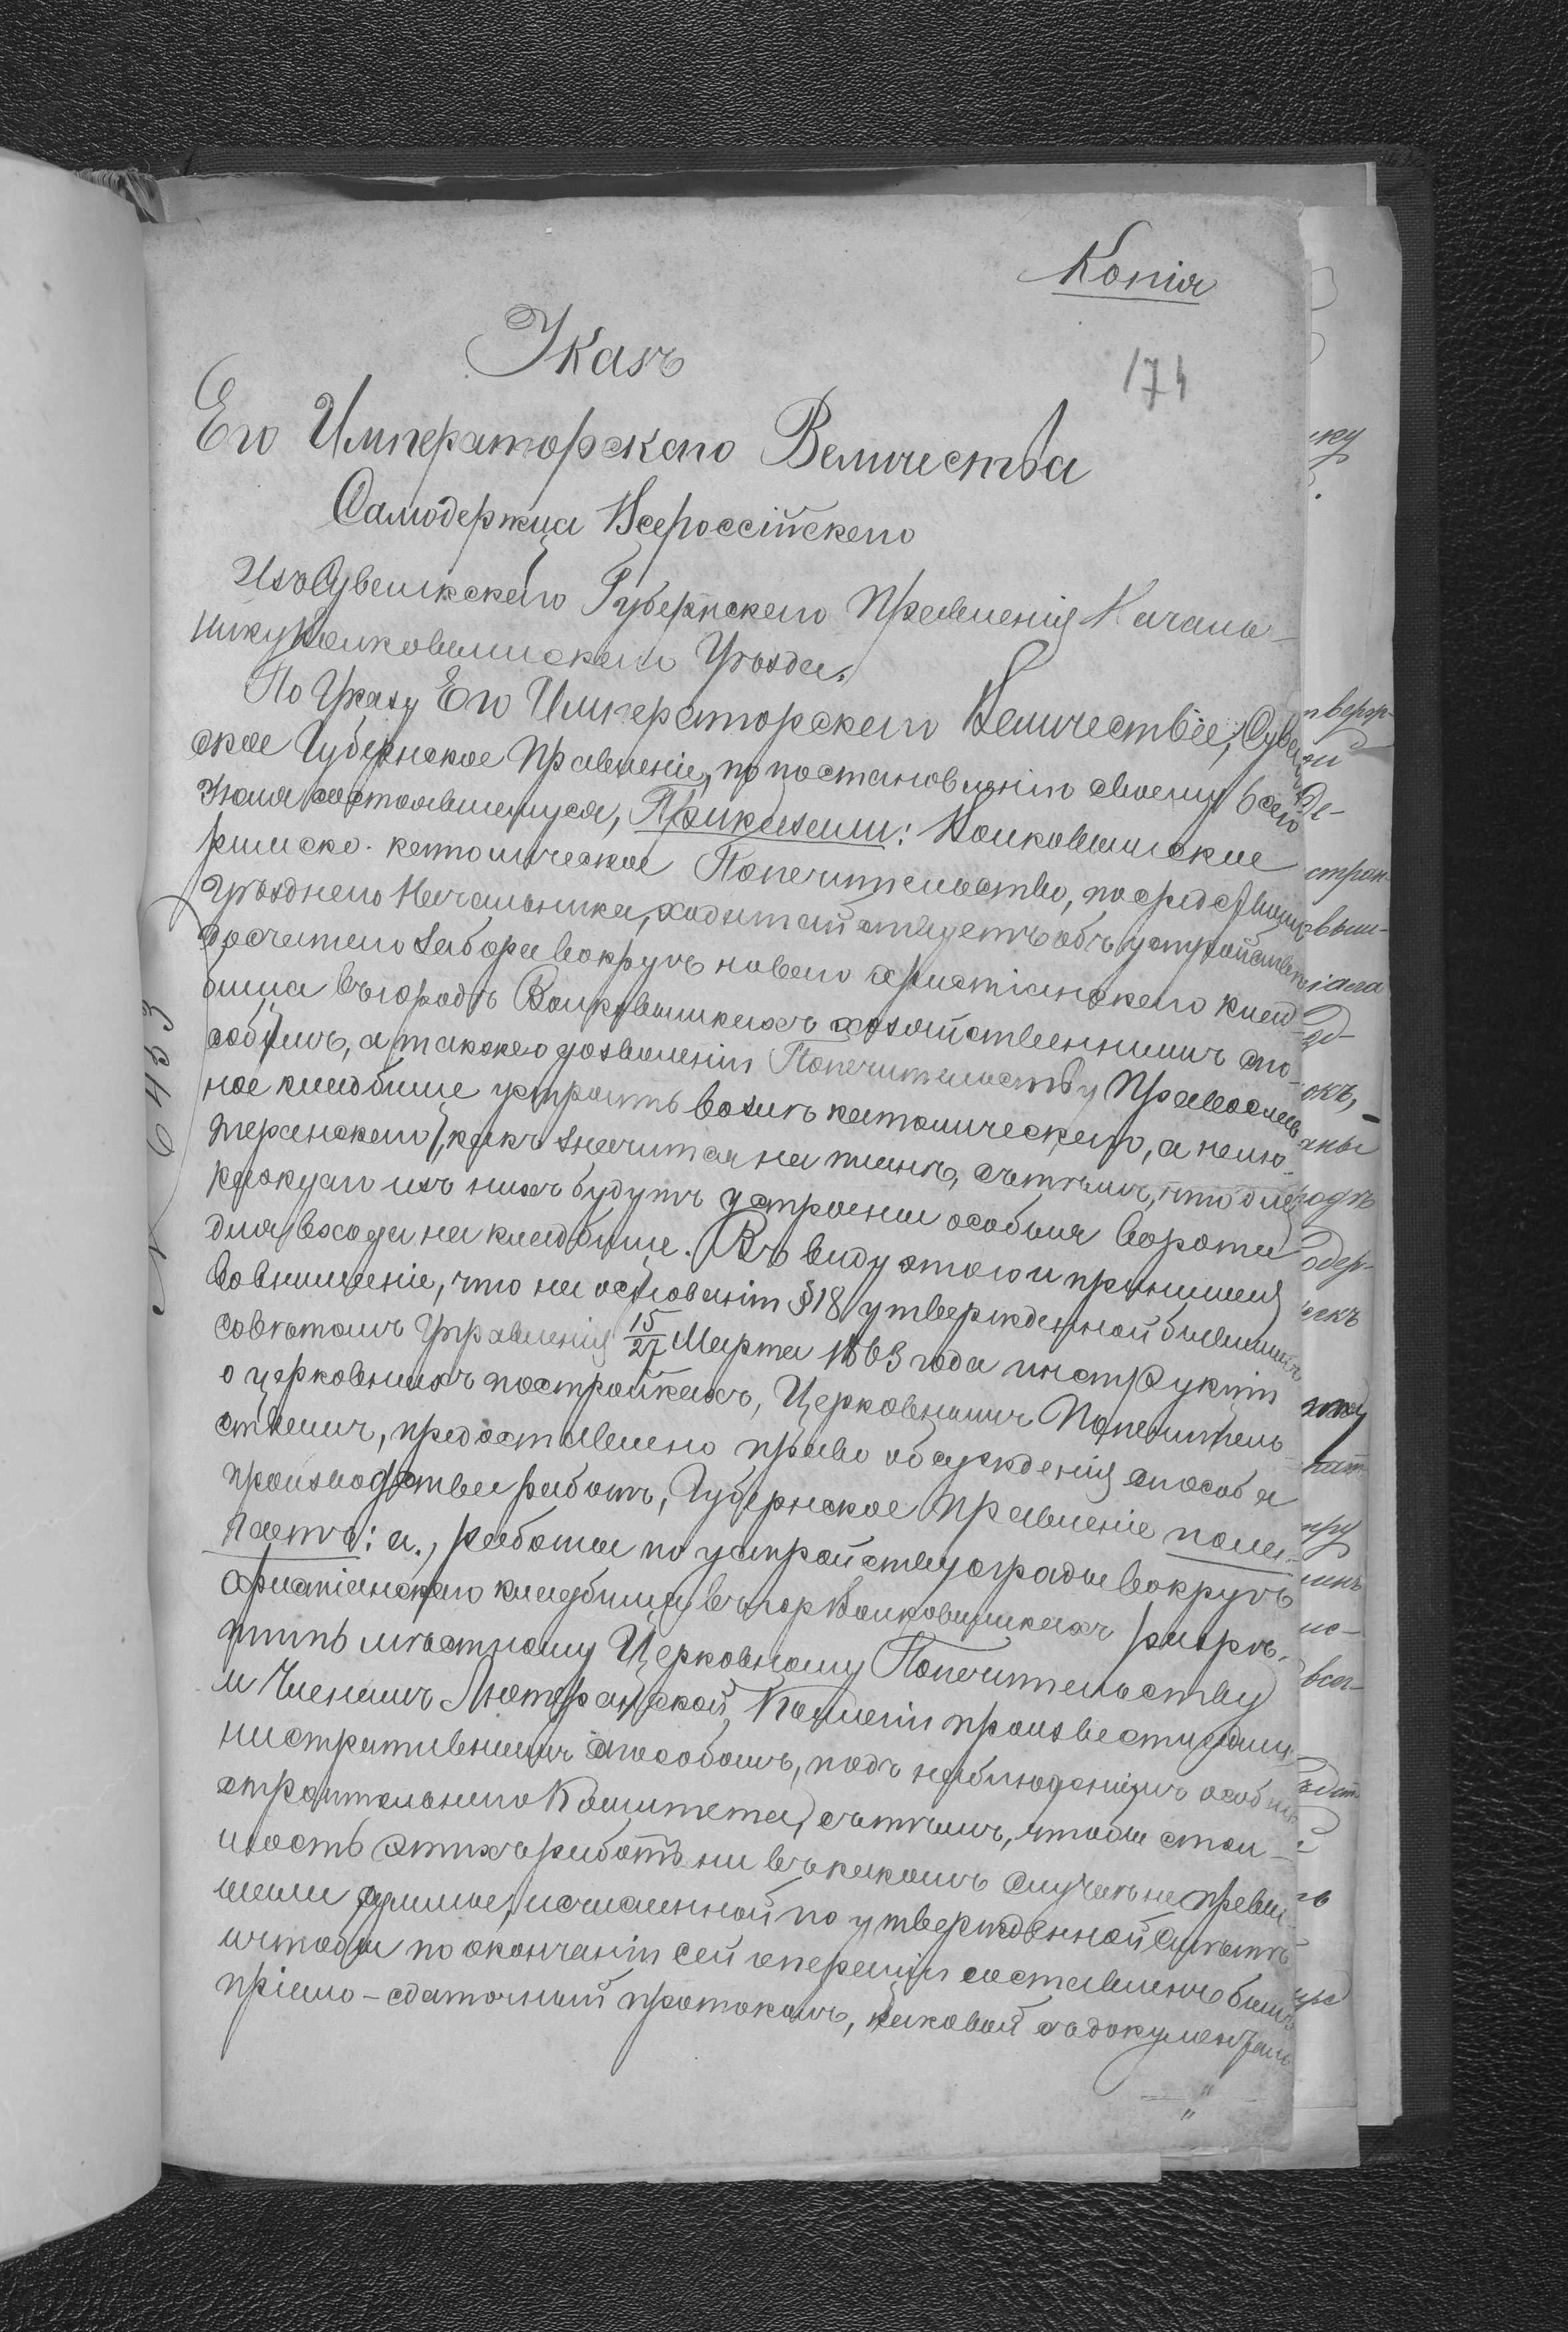 Копія
174
Указъ
Его Императорскаго Величества
Самодержца Всероссійскаго
Изъ Сувалкскаго Губернскаго Правленія Началь-
нику Волковышскаго Уѣзда.
По Указу Его Императорскаго Величества, Сувалк
ское Губернское Правленіе, по постановленію своему 6 сего
Іюля состоявшемуся, Приказали: Волковышское
римско-католическое Попечительство, посредствомъ
Уѣзднаго Начальника, ходатайствуетъ объ устройствѣ
досчатаго забора вокругъ новаго христіанскаго клад-
бища въ городѣ Волковышкахъ хозяйственнымъ спо-
собомъ, а также о дозволеніи Попечительству Православ
ное кладбище устроить возлѣ католическаго, а не лю-
теранскаго, какъ значится на планѣ, съ тѣмъ, что для
каждаго изъ нихъ будутъ устроены особыя ворота
для входа на кладбище. Въ виду этого и принимая
во вниманіе, что на основаніи §18 утвержденной бывшимъ
Совѣтомъ Управленія 15/27 Марта 1863 года инструкціи
о церковныхъ постройкахъ, Церковнымъ Попечитель
ствамъ, предоставлено право обсужденія способа
производства работъ, Губернское Правленіе пола-
гаетъ: а., работы по устройству ограды вокругъ
христіанскаго кладбища въ гор. Волковышкахъ разрѣ-
шить мѣстному Церковному Попечительству
и Членамъ Лютеранской Коллегіи произвести адми-
нистративнымъ способомъ, подъ наблюденіемъ особаго
строительнаго Комитета, съ тѣмъ, чтобы стои-
мость этихъ работъ ни въ какомъ случаѣ не превы-
шала суммы, исчисленной по утвержденной смѣтѣ
и чтобы по окончаніи сей операціи составленъ былъ
пріемо-сдаточный протоколъ, каковой съ документами
N 6453